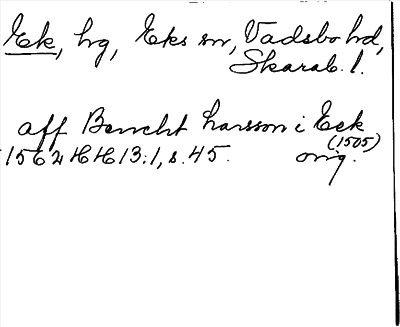 Ek, hg, Eks sn, Vadsbo hd,
Skarab. l.
aff Benncht Larsson i Eek
(1505)
1562 HH 13:1, s. 45. orig.